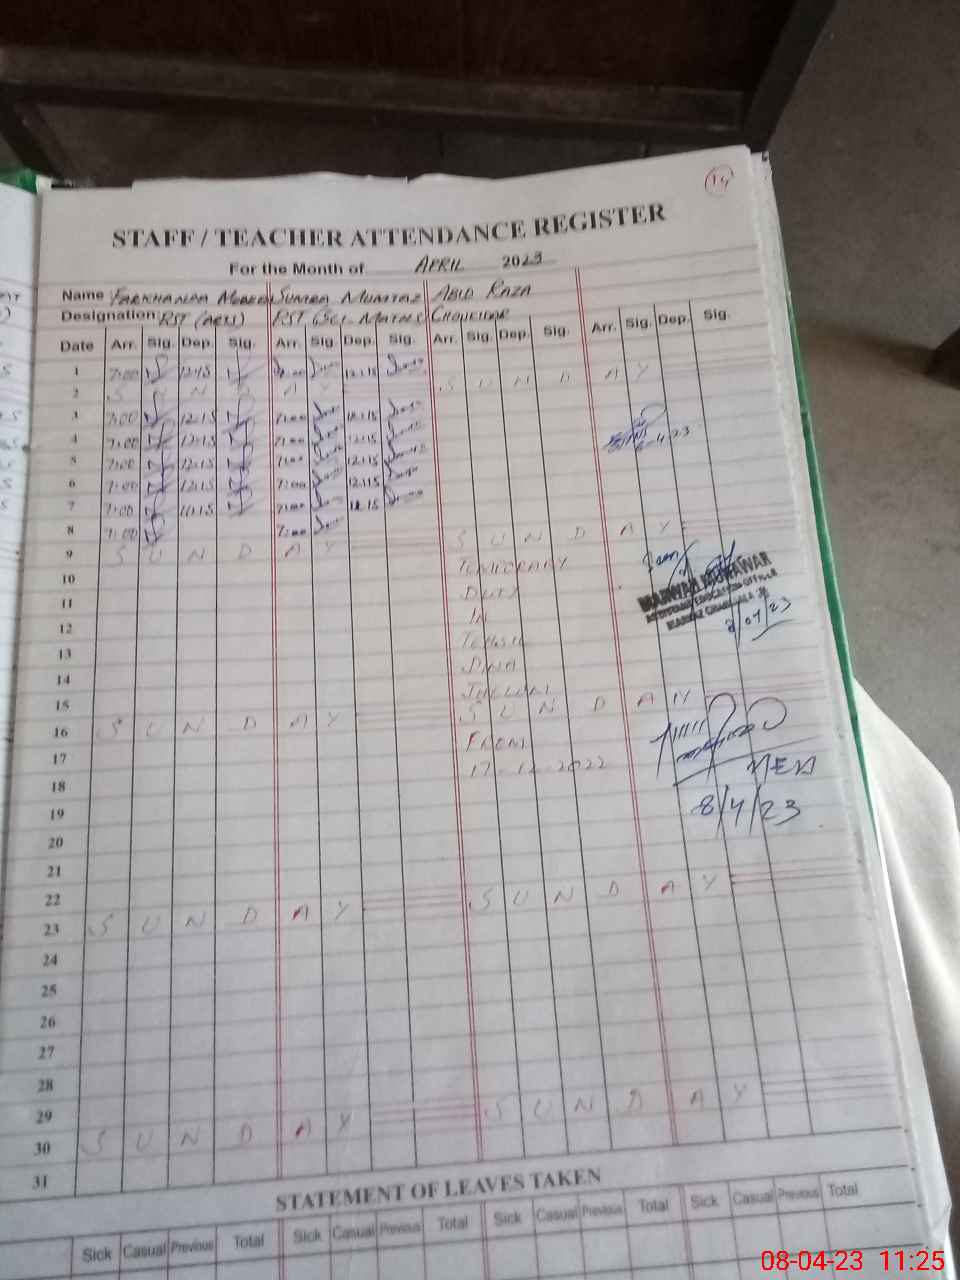 14
STAFF / TEACHER ATTENDANCE REGISTER
For the Month of APRIL 2023
Name FARKHANDA SUMRA MUMTAZ ABID RAZA
Designation RST (ARTS) RST (SCI-MATHS) CHOUKIDAR
Date Arr. Sig. Dep. Sig. Arr. Sig. Dep. Sig. Arr. Sig. Dep. Sig. Arr. Sig. Dep. Sig.
1 7:00 12:15 7:00 12:15
2 S U N D A Y S U N D A Y
3 7:00 12:15 7:00 12:15
4 7:00 12:15 7:00 12:15
5 7:00 12:15 7:00 12:15
6 7:00 12:15 7:00 12:15
7 7:00 7:00
8 7:00 7:00
9 S U N D A Y S U N D A Y
10 TEMPORARY
11 DUTY
12 IN
13 TEHSIL
14 DINA
15 JHELUM
16 S U N D A Y S U N D A Y
17 FROM
18 17-12-2022
19
20
21
22
23 S U N D A Y S U N D A Y
24
25
26
27
28
29
30 S U N D A Y S U N D A Y
31
MARWAH MUNAWAR
ASSISTANT EDUCATION OFFICER
8/04/23
8/4/23
STATEMENT OF LEAVES TAKEN
Sick Casual Previous Total Sick Casual Previous Total Sick Casual Previous Total Sick Casual Previous Total
08-04-23 11:25